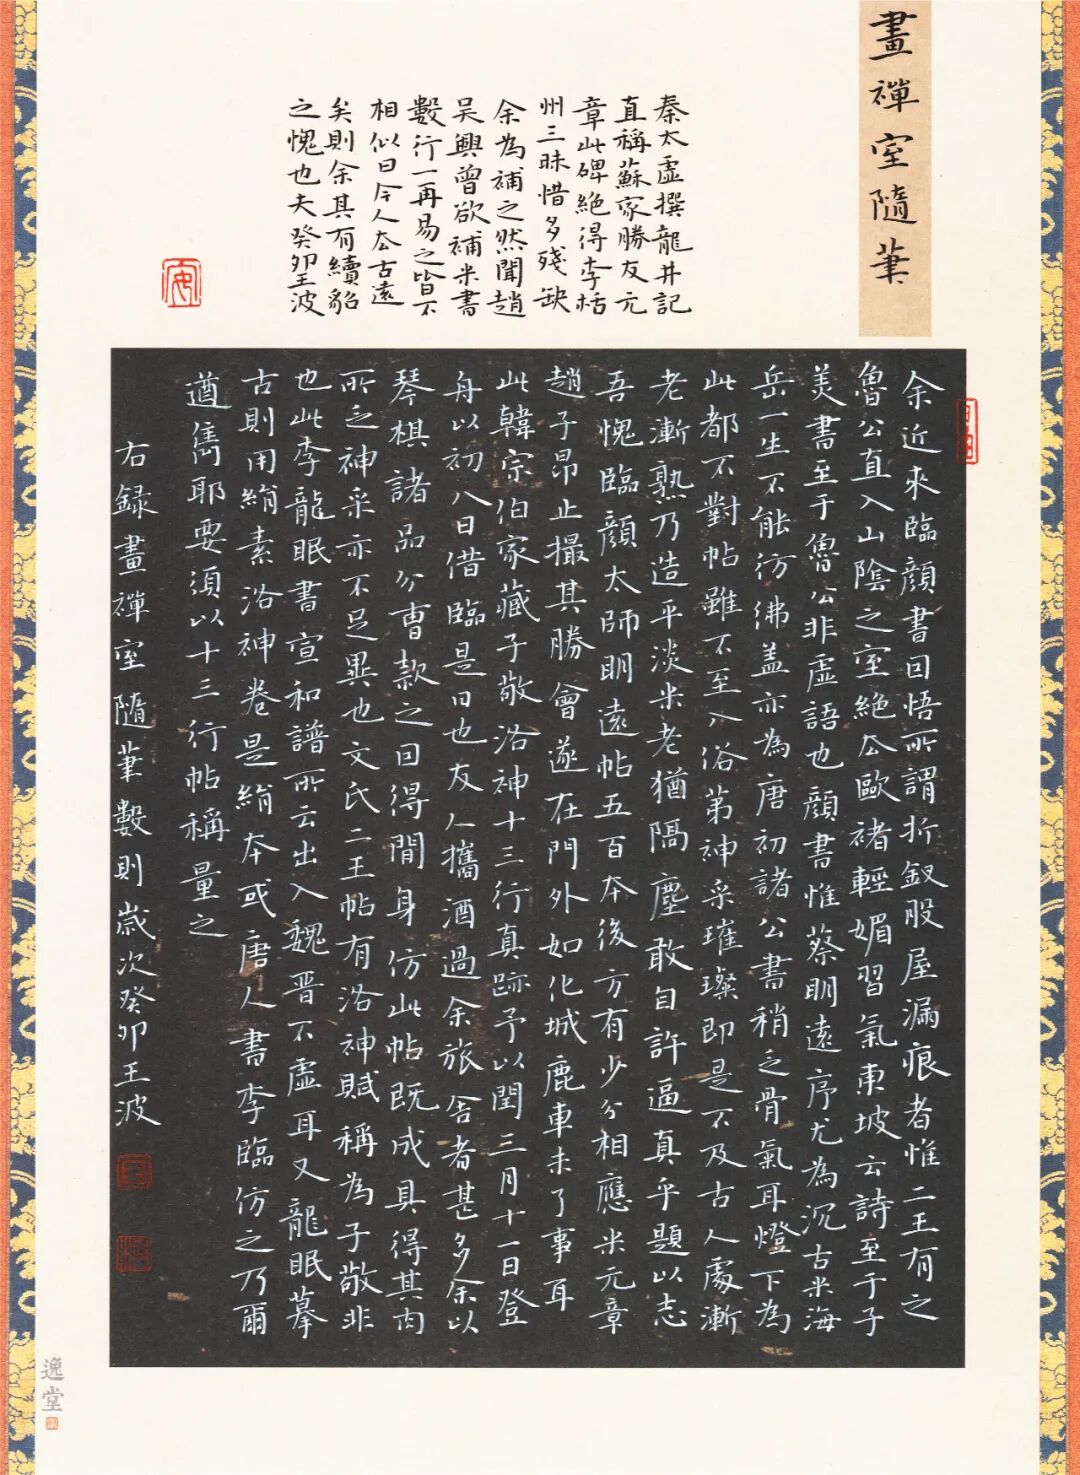 畫禪室隨筆
秦太虛撰龍井記
直稱蘇家勝友元
章此碑絕得李栝
州三昧惜多殘缺
余為補之然聞趙
吳興曾欲補米書
數行一再易之皆不
相似曰今人去古遠
矣則余其有續貂
之愧也夫癸卯王波
余近來臨顏書因悟所謂折釵股屋漏痕者惟二王有之
魯公直入山陰之室絕去歐褚輕媚習氣東坡云詩至于子
美書至于魯公非虛語也顏書惟蔡明遠序尤為沉古米海
岳一生不能彷彿蓋亦為唐初諸公書稍乏骨氣耳燈下為
此都不對帖雖不至入俗第神采璀璨即是不及古人處漸
老漸熟乃造平淡米老猶隔塵敢自許逼真乎題以志
吾愧臨顏太師明遠帖五百本後方有少分相應米元章
趙子昂止撮其勝會遂在門外如化城鹿車未了事耳
此韓宗伯家藏子敬洛神十三行真跡予以閏三月十一日登
舟以初八日借臨是日也友人攜酒過余旅舍者甚多余以
琴棋諸品分曹款之因得閒身仿此帖既成具得其肉
所乏神采亦不足異也文氏二王帖有洛神賦稱為子敬非
也此李龍眠書宣和譜所云出入魏晉不虛耳又龍眠摹
古則用絹素洛神卷是絹本或唐人書李臨仿之乃爾
遒雋耶要須以十三行帖稱量之
右錄畫禪室隨筆數則歲次癸卯王波
逸堂